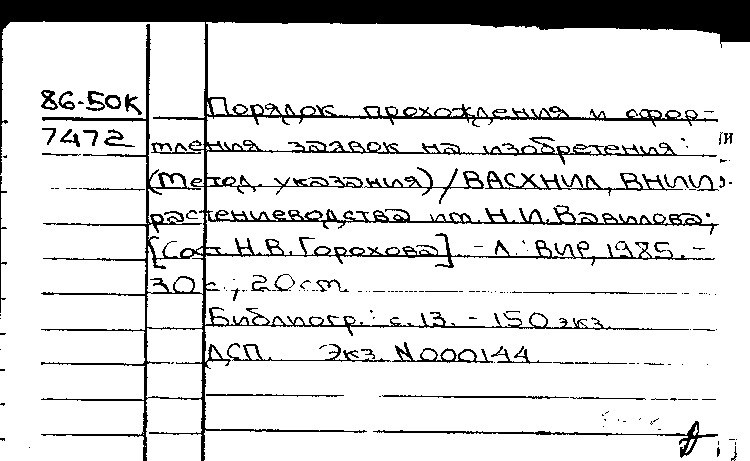 86-50К
7472
Порядок прохождения и офор-
мления заявок на изобретения:
(Метод. указания) / ВАСХНИЛ, ВНИИ
растениеводства им. Н.И. Вавилова;
[Сост. Н.В. Горохова] - Л.: ВИР, 1985. -
30 с.; 20 cm
Библиогр.: с. 13. - 150 экз.
ДСП. Экз. N000144